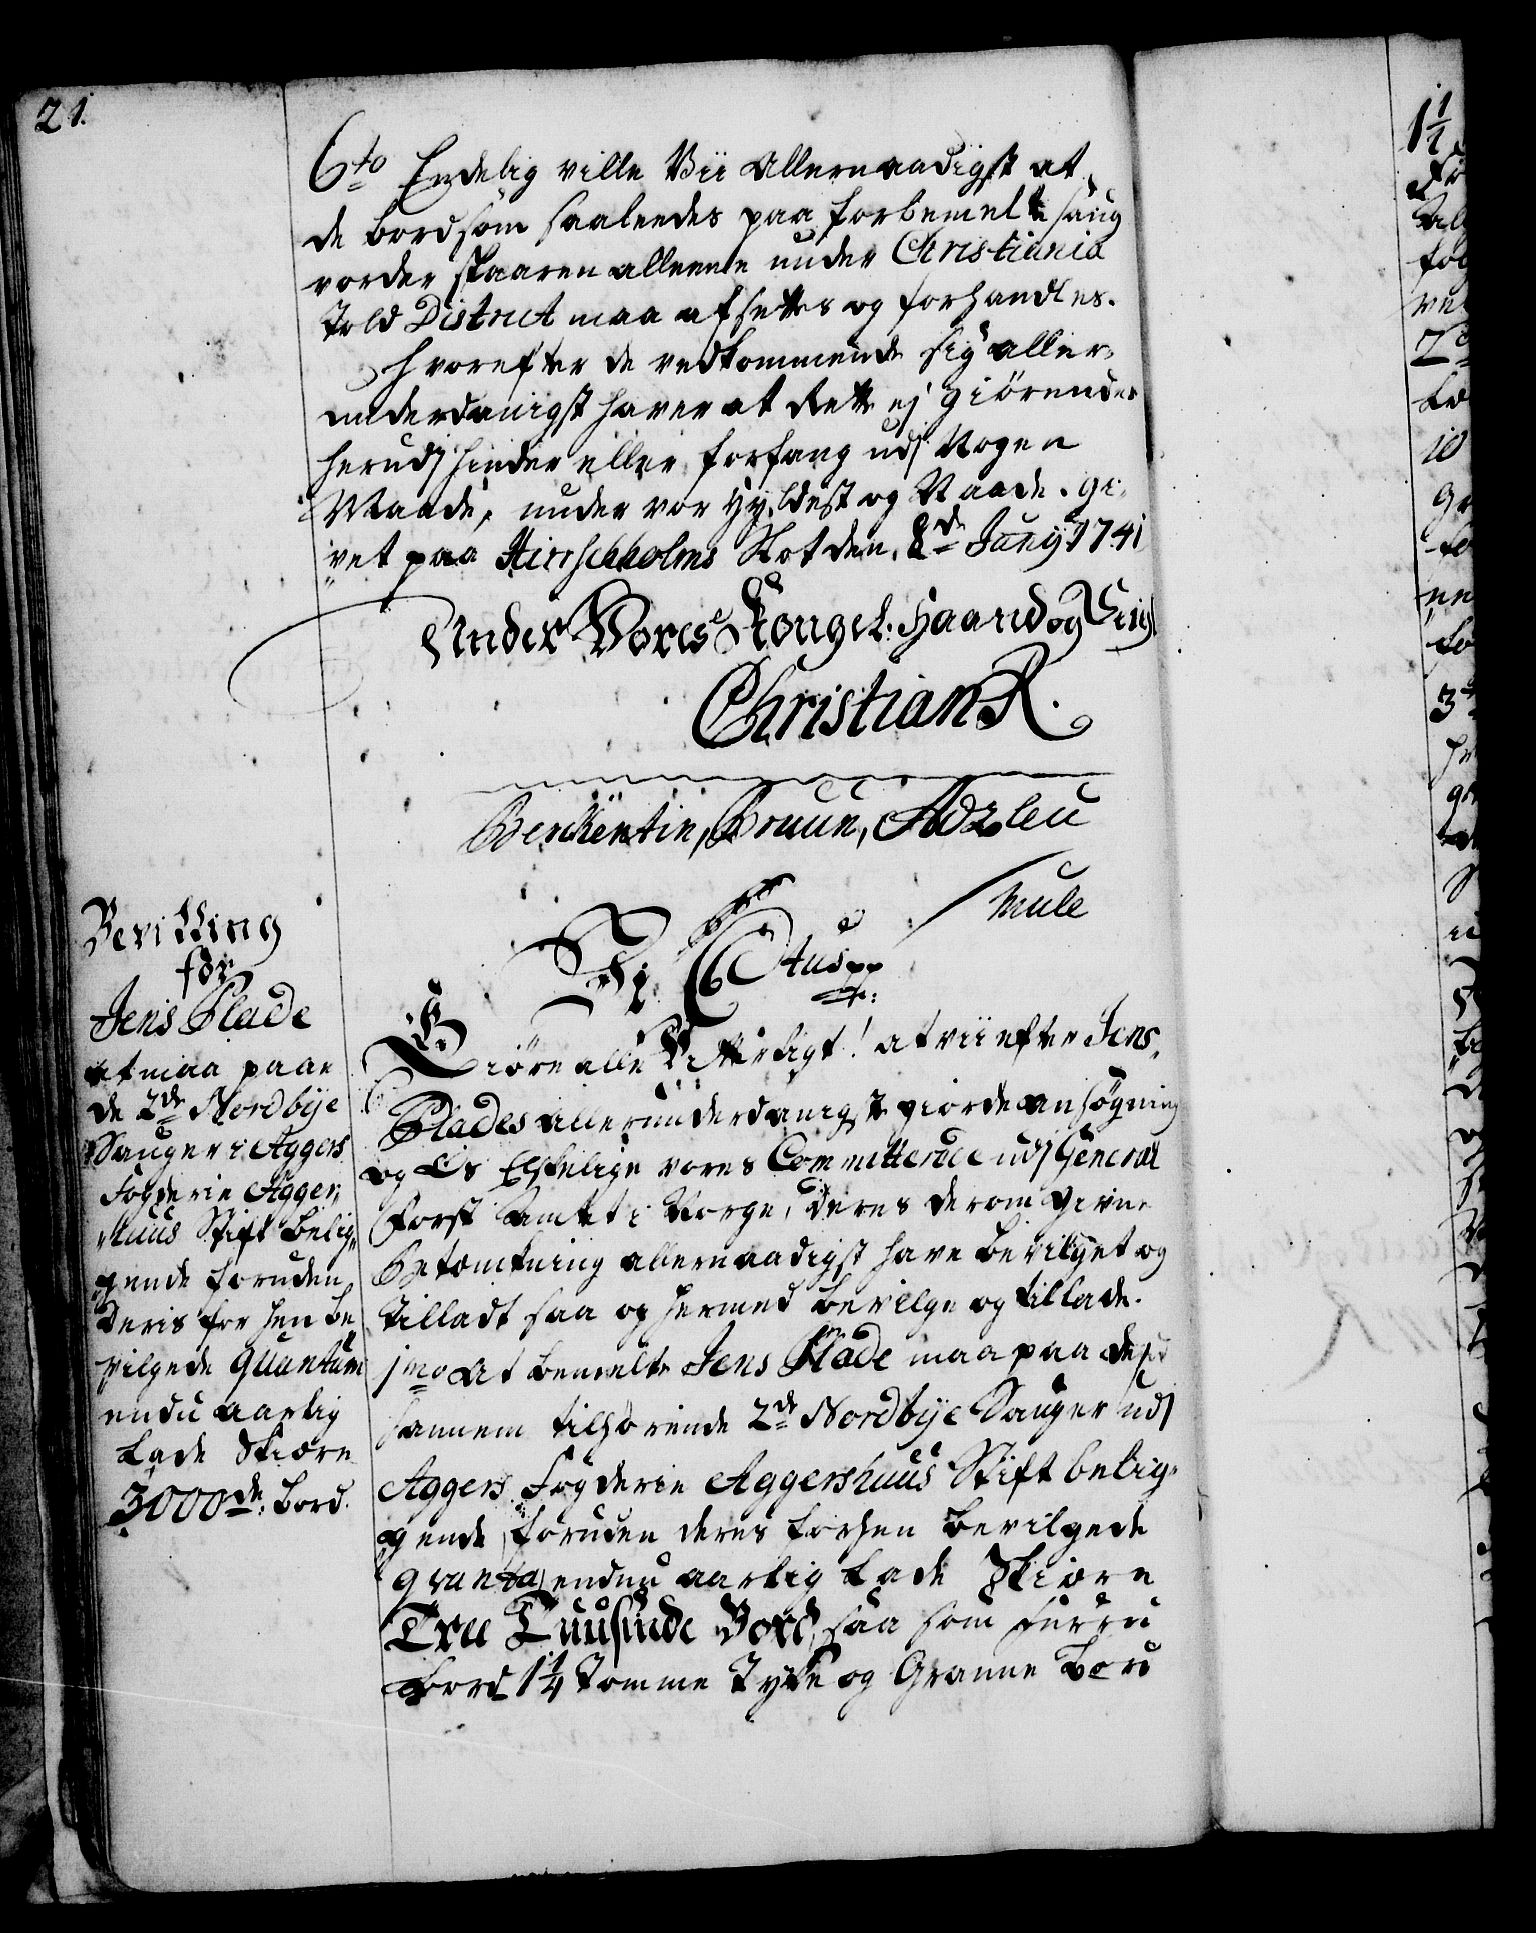 21.
6to Endelig ville Vii Allernaadigst at
de bord som saaleedes paa forbemelte saug
vorder skaaren alleene under Christiania
Told District maa afsettes og forhandles.
Hvorefter de vedkommende sig aller,,
underdanigst haver at Rette ej giörendes
herudj hinder eller forfang udj Nogen
Maade, under vor Hyldest og Naade. Gi,,
vet paa Hirschholms Slot den, 8de Junij 1741
Under Vores Kongel: Haand og Seigl
Christian R.
Berckentin, Bruun, Adzleu
Mule
Vj C 6tus pp
Bevilling
for
Jens Plade
at maa paa
de 2de Nordbye
Sauger i Aggers
Fogderie Agger,,
Huus Stift belig,,
gende foruden
Deris forhen be
vilgede quantum
endu aarlig
Lade Skiære
3000de: bord.
Giöre alle Vitterligt! at vii efter Jens
Plades allerunderdanigst giorde ansögning
og Os Elskelige vores Committerede udj General
Forst Amtet i Norge, deres derom givne
Betænkning allernaadigst have bevilget og
tilladt saa og hermed bevilge og tillade.
1mo At bemelte Jens Plade maa paa de
hannem tilhörende 2de Nordbye Sauger udj
Aggers Fogderie Aggershuus Stift belig,,
gende foruden deres forhen bevilgede
qvanta endnu aarlig Lade Skiære
Tree Tuusinde Bord, saa som furru
bord 1 1/4 Tomme Tyke og Granne bord